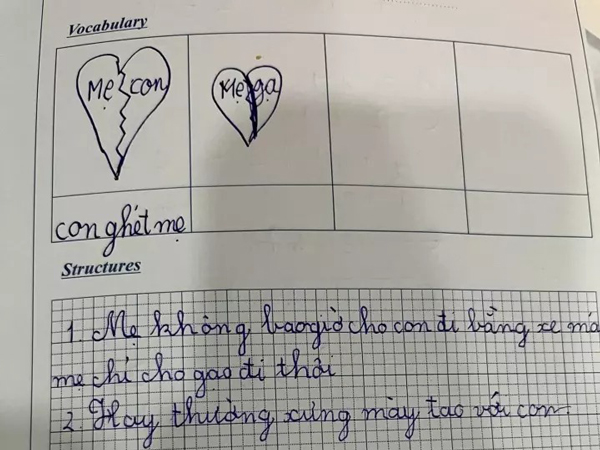 Vocabulary
Mẹ con
Mẹ gạ
con ghét mẹ
Structures
1. Mẹ không bao giờ cho con đi bằng xe mà
mẹ chỉ cho gạo đi thôi
2. Hay thường xưng mày tao với con.